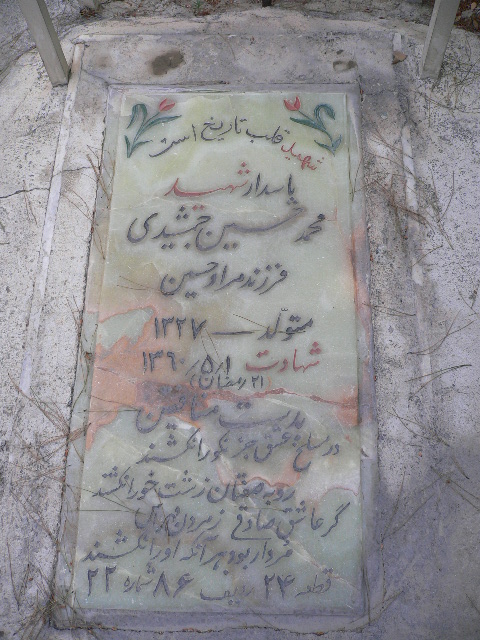 شهید قلب تاریخ است
پاسدار شهید
محمد حسین جمشیدی
فرزند مراد حسین
متولد - ۱۳۲۷
شهادت ۱ر۵ر۱۳۶۰
(۲۱ رمضان)
بدست منافقین
در مسلخ عشق جز نکو را نکشند
روبه صفتان زشت خو را نکشند
گر عاشق صادقی ز مردن مهراس
مردار بود هر آنکه او را نکشند
قطعه ۲۴ ردیف ۸۶ شماره ۲۲